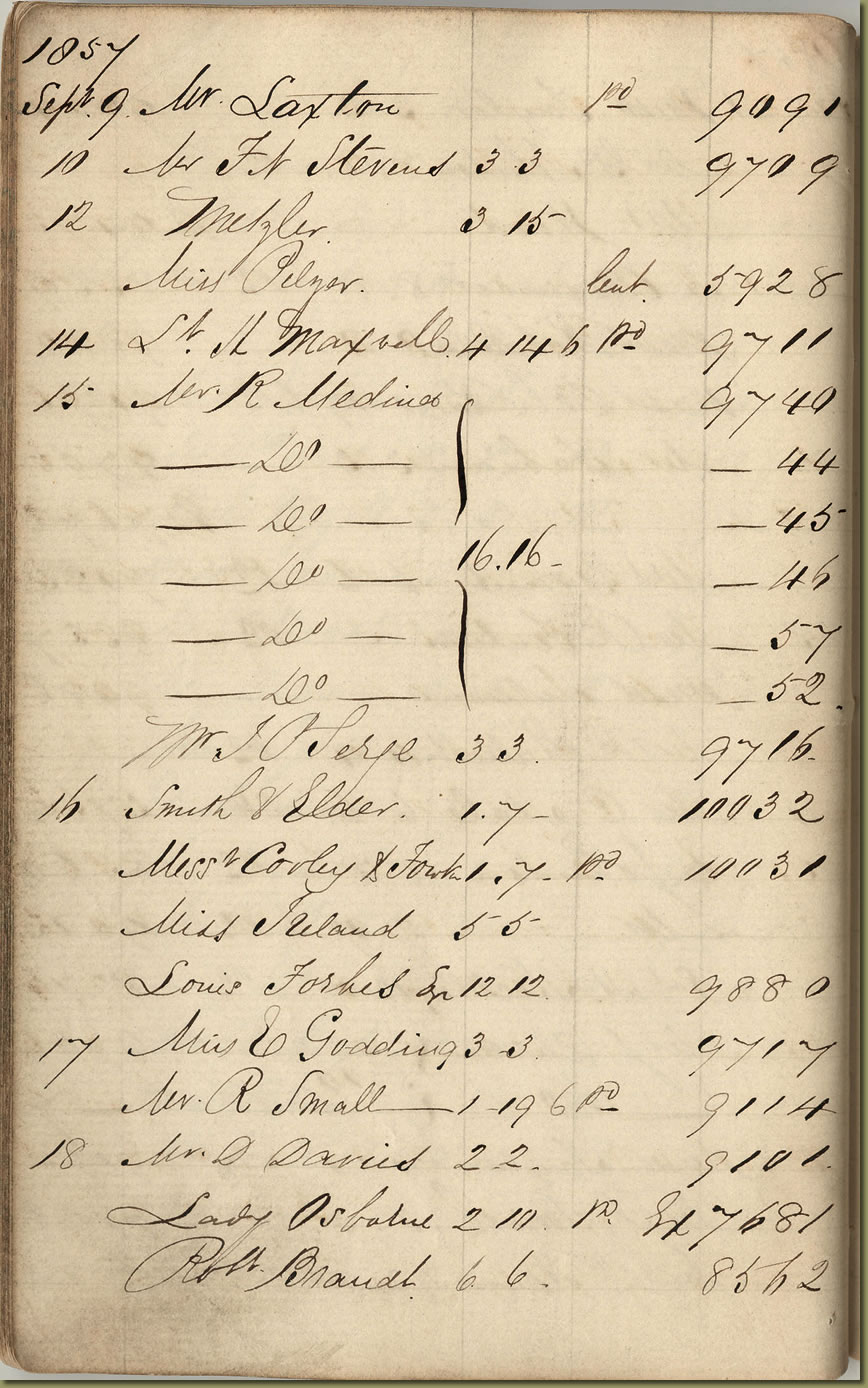 1857
Sept. 9 Mr. Laxton pd 9091
10 Mr F N Stevens 3 3 9709
12 Metzler 3 15
Miss Pelzer. lent. 5928
14 Lt. H Maxwell. 4 14 6 pd 9711
15 Mr. R Medina 9740
— Do — — 44
— Do — — 45
16.16 -
— Do — — 46
— Do — — 57
— Do — — 52.
Mr. J O Serge 3 3. 9716.
16 Smith & Elder. 1.7 - 10032
Messr Corley & 1.7 - pd 10031
Miss Ireland 5 5
Louis Forbes 12 12. 9880
17 Miss E Godding 3 - 3. 9717
Mr. R Small — 1 - 19 6 pd 9114
18 Mr. D Davies 2 2. 9101.
Lady Osborne 2 10. p. Ex 7681
Robt. Brandt. 6 6. 8562